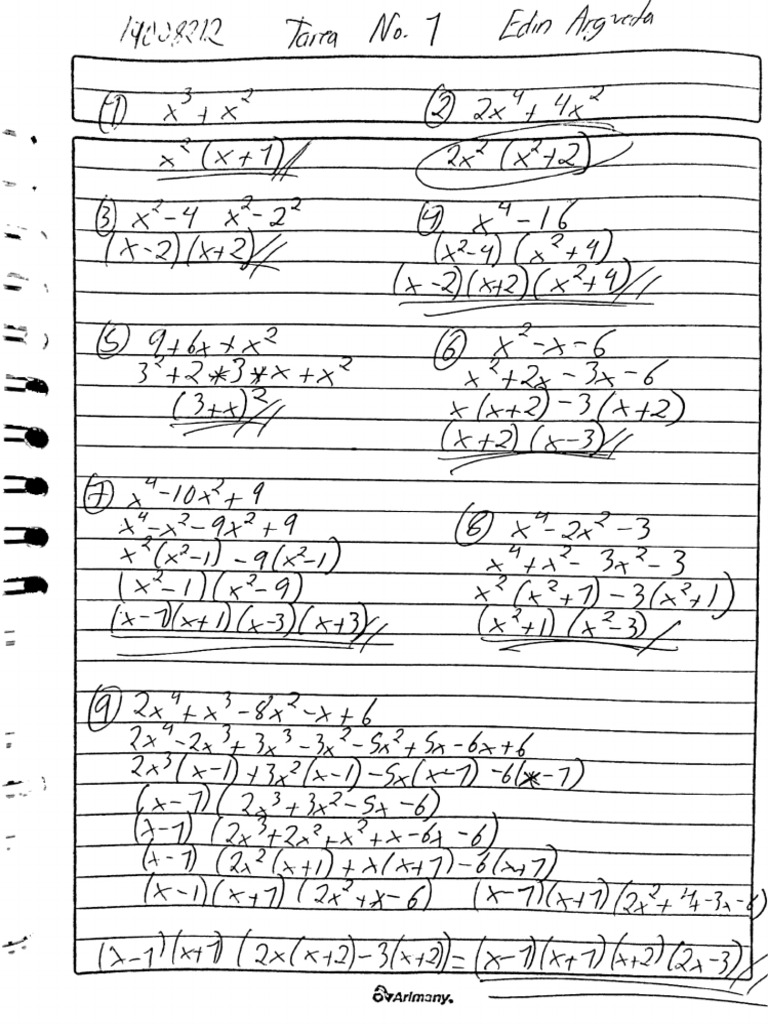 14008212 Tarea No. 1 Edin Argueta
① x³ + x²
x² (x + 1)
② 2x⁴ + 4x²
2x² (x² + 2)
③ x² - 4 x² - 2²
(x - 2)(x + 2)
④ x⁴ - 16
(x² - 4) (x² + 4)
(x - 2)(x + 2)(x² + 4)
⑤ 9 + 6x + x²
3² + 2 * 3 * x + x²
(3 + x)²
⑥ x² - x - 6
x² + 2x - 3x - 6
x(x + 2) - 3(x + 2)
(x + 2) (x - 3)
⑦ x⁴ - 10x² + 9
x⁴ - x² - 9x² + 9
x²(x² - 1) - 9(x² - 1)
(x² - 1)(x² - 9)
(x - 1)(x + 1)(x - 3)(x + 3)
⑧ x⁴ - 2x² - 3
x⁴ + x² - 3x² - 3
x²(x² + 1) - 3(x² + 1)
(x² + 1)(x² - 3)
⑨ 2x⁴ + x³ - 8x² - x + 6
2x⁴ - 2x³ + 3x³ - 3x² - 5x² + 5x - 6x + 6
2x³(x - 1) + 3x²(x - 1) - 5x(x - 1) - 6(x - 1)
(x - 1) (2x³ + 3x² - 5x - 6)
(x - 1) (2x³ + 2x² + x² + x - 6x - 6)
(x - 1) (2x²(x + 1) + x(x + 1) - 6(x + 1)
(x - 1)(x + 1)(2x² + x - 6) (x - 1)(x + 1)(2x² + 4x - 3x - 6)
(x - 1)(x + 1) (2x(x + 2) - 3(x + 2)) = (x - 1)(x + 1)(x + 2)(2x - 3)
Arimany.